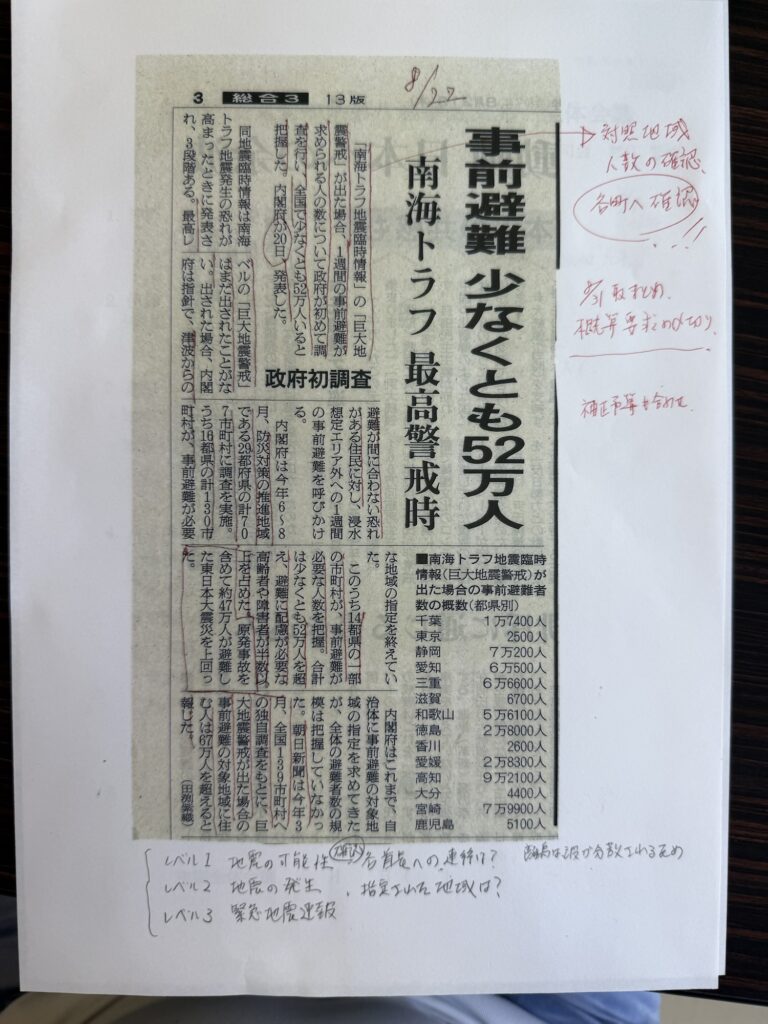 3 総合3 13版
8/22
事前避難 少なくとも52万人
南海トラフ 最高警戒時
政府初調査
「南海トラフ地震臨時情報」の「巨大地
震警戒」が出た場合、1週間の事前避難が
求められる人の数について政府が初めて調
査を行い、全国で少なくとも52万人いると
把握した。内閣府が20日、発表した。
同地震臨時情報は南海
トラフ地震発生の恐れが
高まったときに発表さ
れ、3段階ある。最高レ
ベルの「巨大地震警戒」
はまだ出されたことがな
い。出された場合、内閣
府は指針で、津波からの
避難が間に合わない恐れ
がある住民に対し、浸水
想定エリア外への1週間
の事前避難を呼びかけ
る。
内閣府は今年6~8
月、防災対策の推進地域
である29都府県の計70
7市町村に調査を実施。
うち16都県の計130市
町村が、事前避難が必要
な地域の指定を終えてい
た。
このうち14都県の一部
の市町村が、事前避難が
必要な人数を把握。合計
は少なくとも52万人を超
え、避難に配慮が必要な
高齢者や障害者が半数以
上を占めた。原発事故を
含めて約47万人が避難し
た東日本大震災を上回っ
た。
内閣府はこれまで、自
治体に事前避難の対象地
域の指定を求めてきた
が、全体の避難者数の規
模は把握していなかっ
た。朝日新聞は今年3
月、全国139市町村へ
の独自調査をもとに、巨
大地震警戒が出た場合の
事前避難の対象地域に住
む人は67万人を超えると
報じた。
■南海トラフ地震臨時
情報(巨大地震警戒)が
出た場合の事前避難者
数の概数(都県別)
千葉 1万7400人
東京 2500人
静岡 7万200人
愛知 6万500人
三重 6万6600人
滋賀 6700人
和歌山 5万6100人
徳島 2万8000人
香川 2600人
愛媛 2万8300人
高知 9万2100人
大分 4400人
宮崎 7万9900人
鹿児島 5100人
対照地域
人数の確認
各町へ確認
取まとめ
レベル1 地震の可能性 各首長への連絡は?
レベル2 地震の発生 、指定された地域は?
レベル3 緊急地震速報